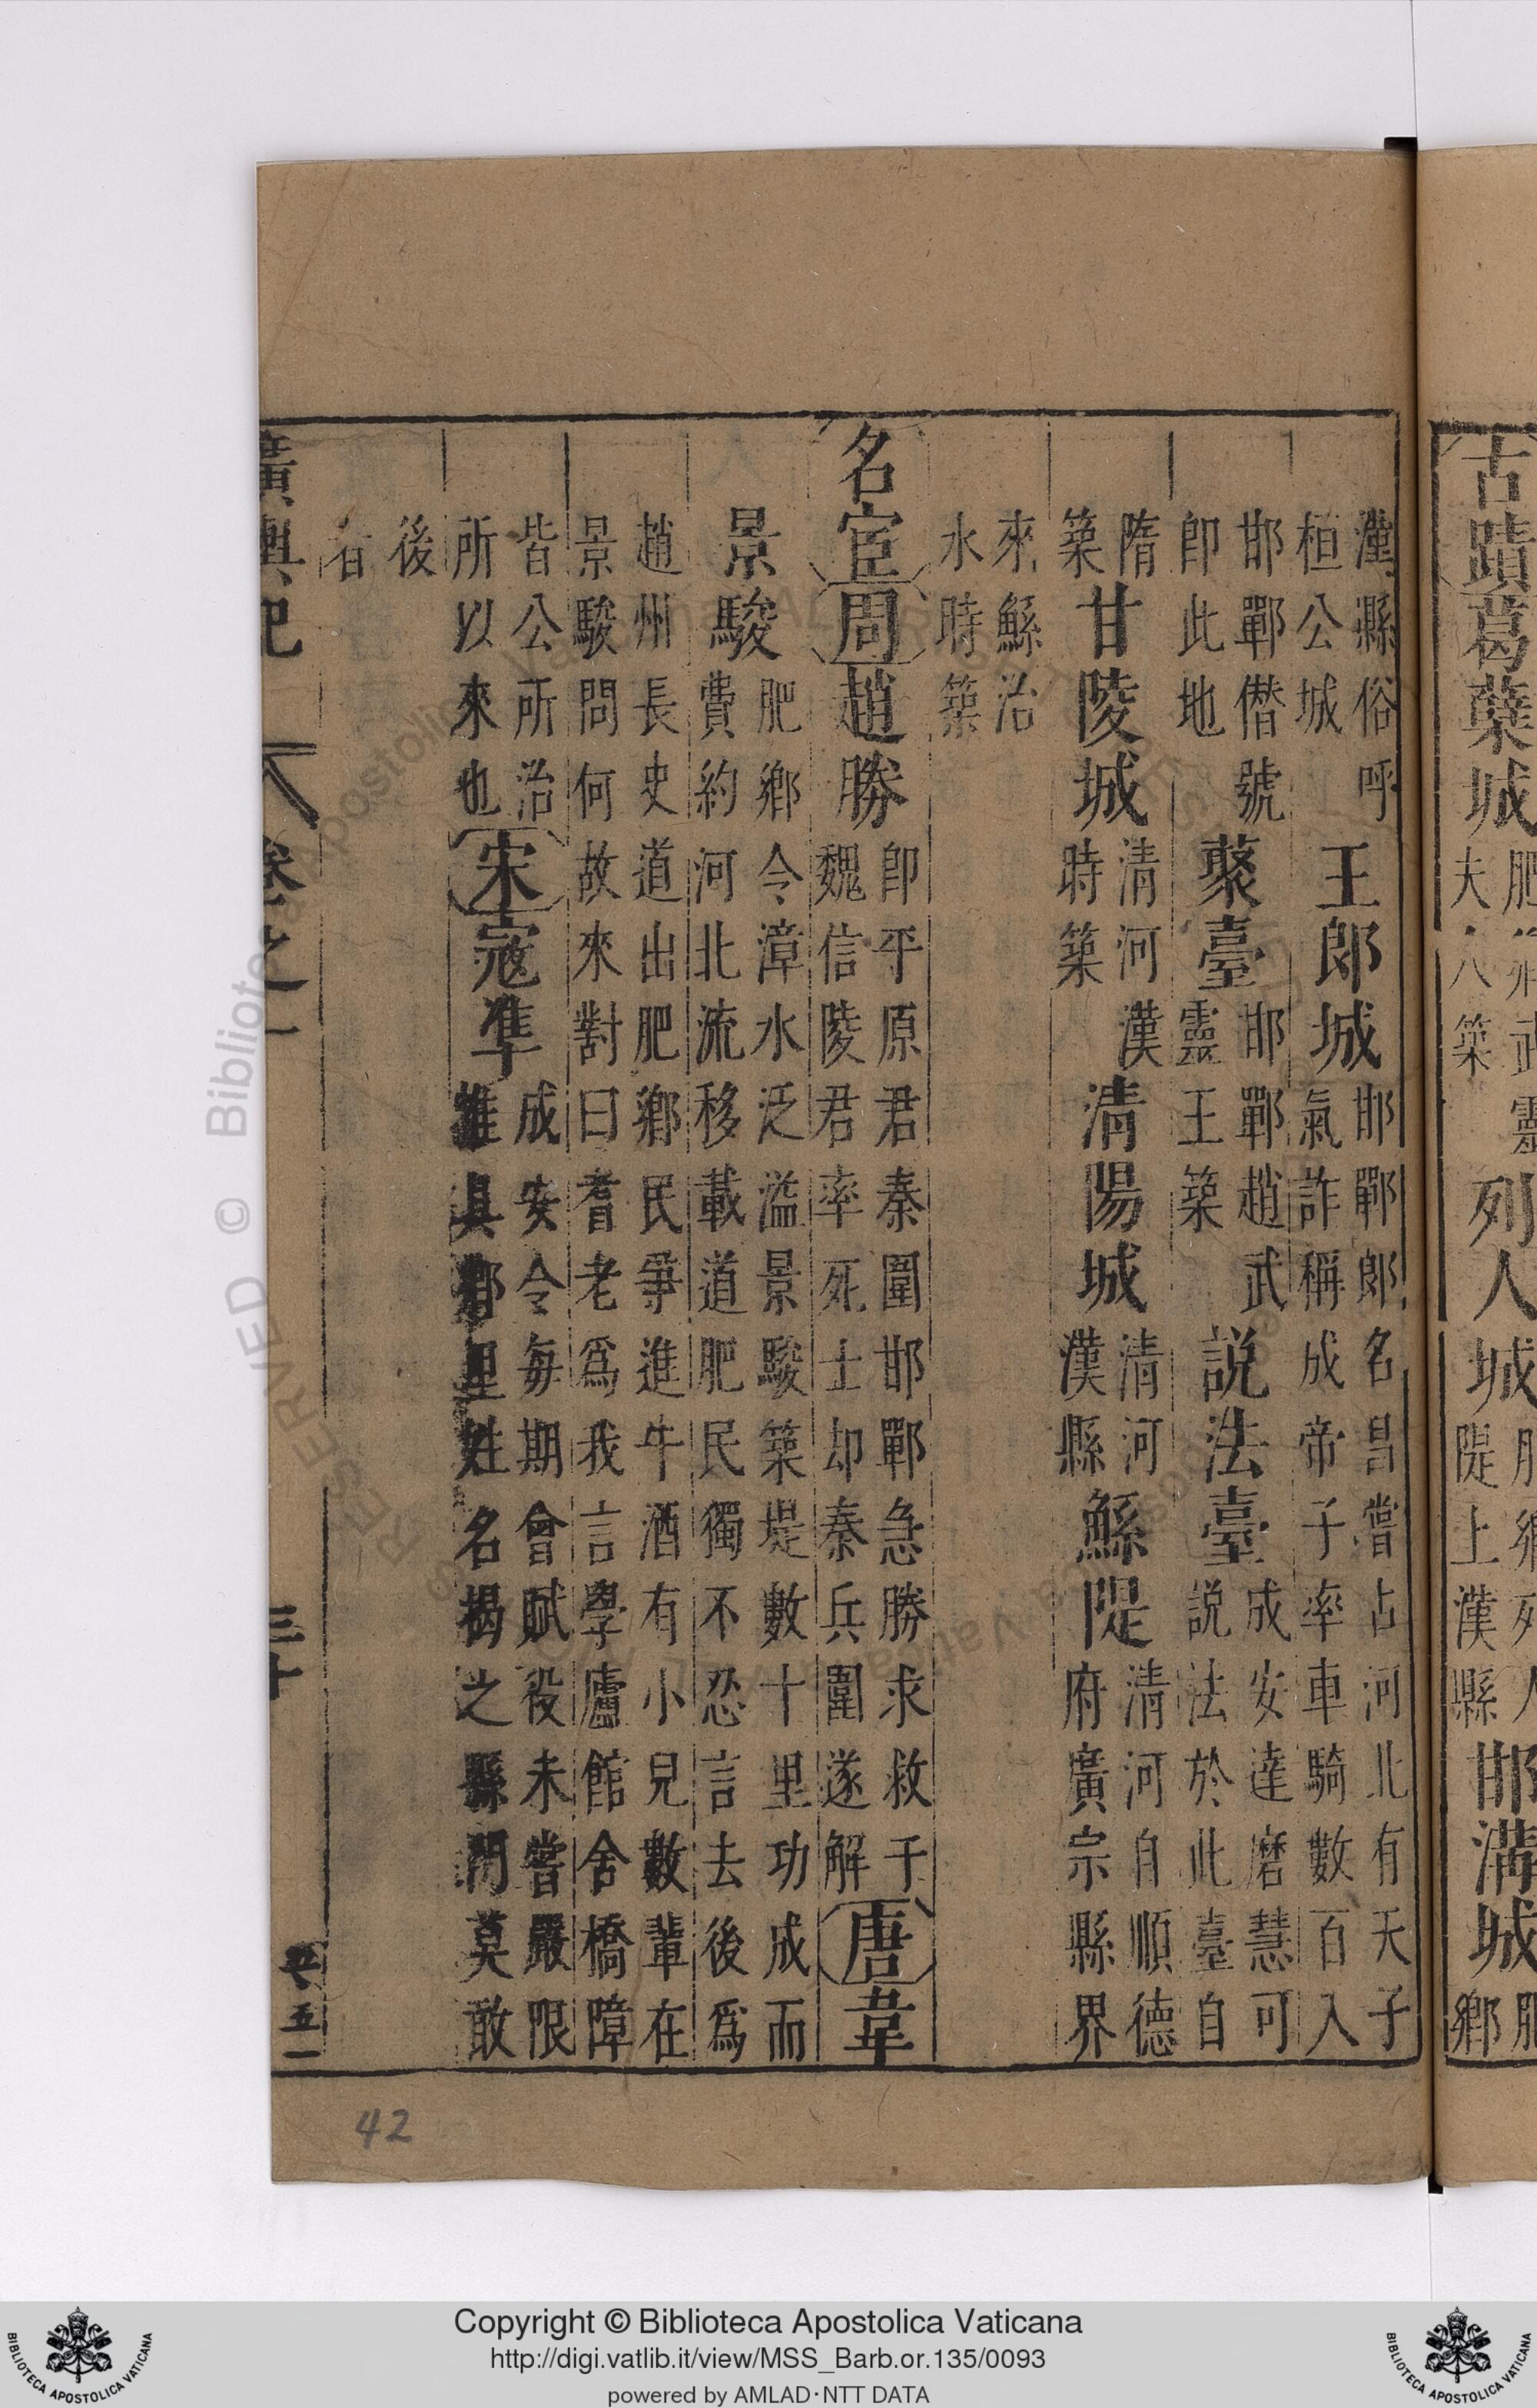 古蹟葛孽城肥鄉武靈夫人築列人城肥鄉列人隄上漢縣邯溝城肥鄉
漢縣俗呼桓公城王郎城邯鄲郎名昌嘗占河北有天子氣詐稱成帝子率車騎數百入
邯鄲僭號卽此地藂臺邯鄲趙武靈王築說法臺成安達磨慧可說法於此臺自
隋築甘陵城清河漢時築清陽城清河漢縣鯀隄清河自順德府廣宗縣界
來鯀治水時築
名宦周趙勝卽平原君秦圍邯鄲急勝求救于魏信陵君率死士却秦兵圍遂解唐韋
景駿肥鄉令漳水泛溢景駿築堤數十里功成而費約河北流移載道肥民獨不忍言去後爲
趙州長史道出肥鄉民爭進牛酒有小兒數輩在景駿問何故來對曰耆老爲我言學廬館舍橋障
皆公所治所以來也宋寇準成安令每期會賦役未嘗嚴限惟具鄉里姓名揭之縣門莫敢
後者
廣輿記 卷之一 三十
42
Copyright © Biblioteca Apostolica Vaticana
http://digi.vatlib.it/view/MSS_Barb.or.135/0093
powered by AMLAD·NTT DATA
BIBLIOTECA APOSTOLICA VATICANA
BIBLIOTECA APOSTOLICA VATICANA